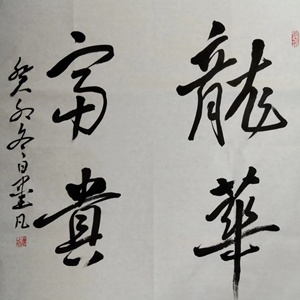 龍華
富貴
癸卯冬日